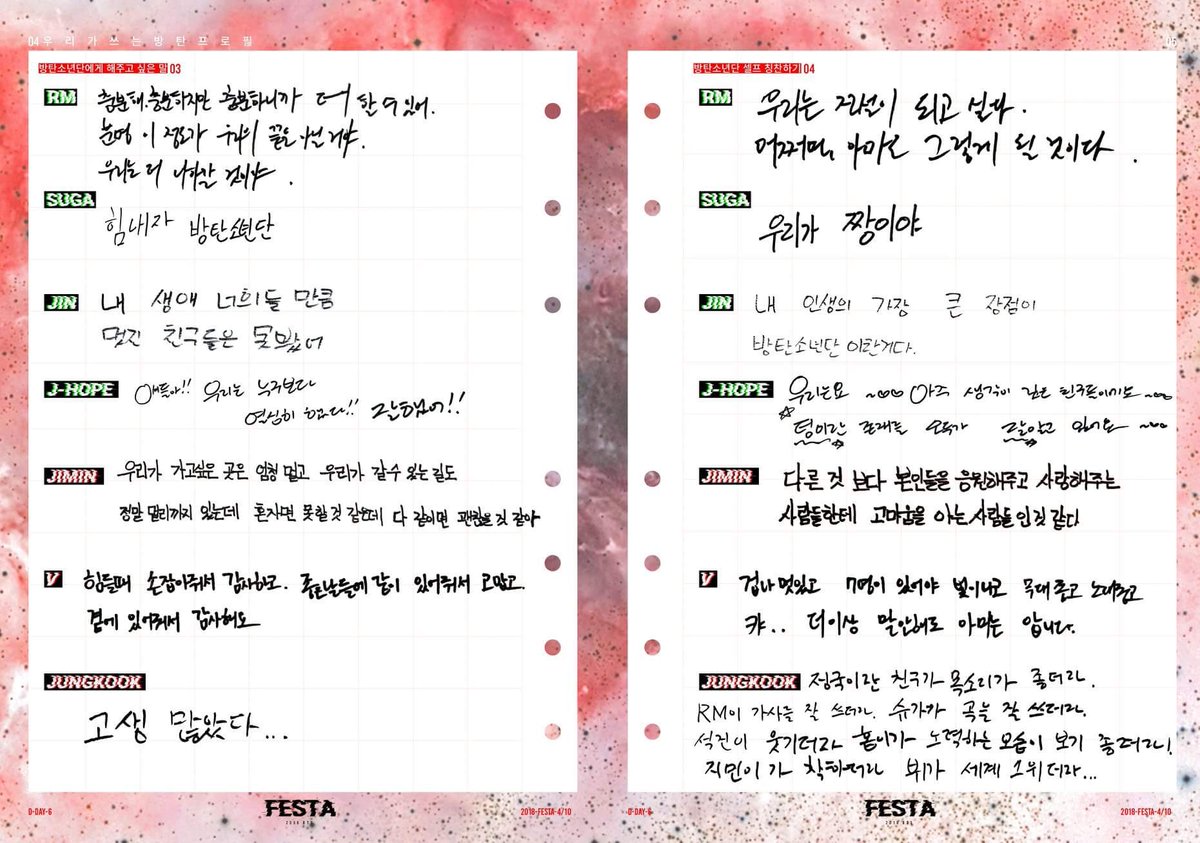 04 우리가쓰는방탄프로필
방탄소년단에게 해주고 싶은 말 03
RM
충분해, 충분하지만 충분하니까 더 할 수 있어.
분명 이 정도가 우리의 끝은 아닐 거야.
우리는 더 나아갈 것이야.
SUGA
힘내자 방탄소년단
JIN
내 생애 너희들 만큼
멋진 친구들은 못봤어
J-HOPE
얘들아!! 우리는 누구보다
열심히 했다!! 잘했어!!
JIMIN
우리가 가고싶은 곳은 엄청 멀고 우리가 갈수 있는 길도
정말 멀리까지 있는데 혼자면 못할 것 같은데 다 같이면 괜찮을 것 같아
V
힘들때 손잡아줘서 감사하고. 좋은날들에 같이 있어줘서 고맙고.
곁에 있어줘서 감사해요
JUNGKOOK
고생 많았다...
D-DAY-6
FESTA
2018-FESTA-4/10
05
방탄소년단 셀프 칭찬하기 04
RM
우리는 전설이 되고 싶다.
어쩌면, 아마도 그렇게 될 것이다.
SUGA
우리가 짱이야
JIN
내 인생의 가장 큰 장점이
방탄소년단 이란거다.
J-HOPE
우리는요 아주 생각이 깊은 친구들이기도
팀이란 존재를 모두가 잘알고 있어요
JIMIN
다른 것 보다 본인들을 응원해주고 사랑해주는
사람들한테 고마움을 아는 사람들인것 같다!
V
겁나 멋있고 7명이 있어야 빛이나고 무대 좋고 노래좋고
캬.. 더이상 말안해도 아미는 압니다.
JUNGKOOK
정국이란 친구가 목소리가 좋더라.
RM이 가사를 잘 쓰더라. 슈가가 곡을 잘 쓰더라.
석진이 웃기더라 홉이가 노력하는 모습이 보기 좋더라!
지민이가 착하더라 뷔가 세계 1위더라...
D-DAY-6
FESTA
2018-FESTA-4/10